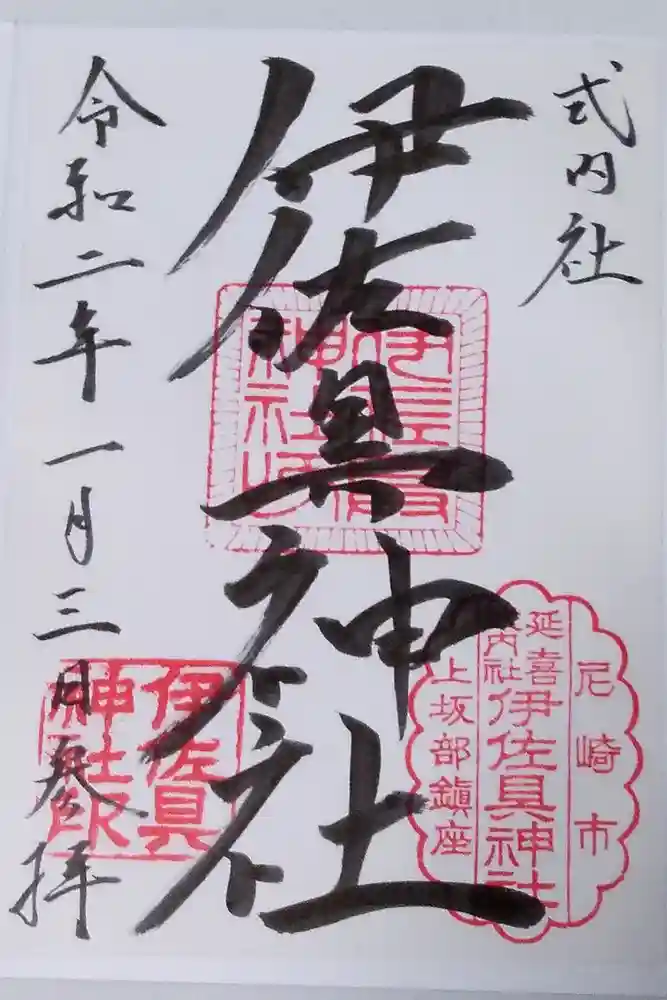 式内社
伊佐具神社
令和二年一月三日参拝
伊佐具
神社印
尼崎市
延喜
式内社 伊佐具神社
上坂部鎮座